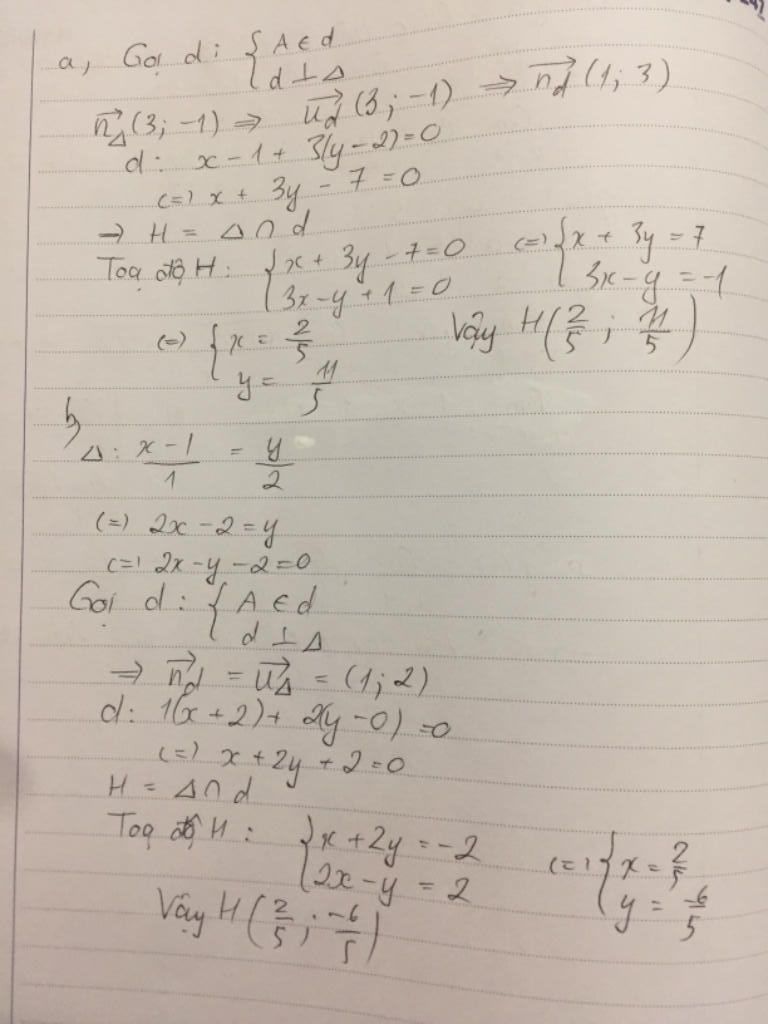 a, Gọi d : { A ∈ d
d ⊥ Δ
n⃗_Δ (3; -1) => u⃗_d (3; -1) => n⃗_d (1; 3)
d: x - 1 + 3(y - 2) = 0
(=) x + 3y - 7 = 0
→ H = Δ ∩ d
Toạ độ H : { x + 3y - 7 = 0 (=) { x + 3y = 7
3x - y + 1 = 0 3x - y = -1
(=) { x = 2/5 Vậy H (2/5 ; 11/5)
y = 11/5
b,
Δ: (x - 1)/1 = y/2
(=) 2x - 2 = y
(=) 2x - y - 2 = 0
Gọi d : { A ∈ d
d ⊥ Δ
=> n⃗_d = u⃗_Δ = (1; 2)
d: 1(x + 2) + 2(y - 0) = 0
(=) x + 2y + 2 = 0
H = Δ ∩ d
Toạ độ H : { x + 2y = -2 (=) { x = 2/5
2x - y = 2 y = -6/5
Vậy H (2/5 ; -6/5)